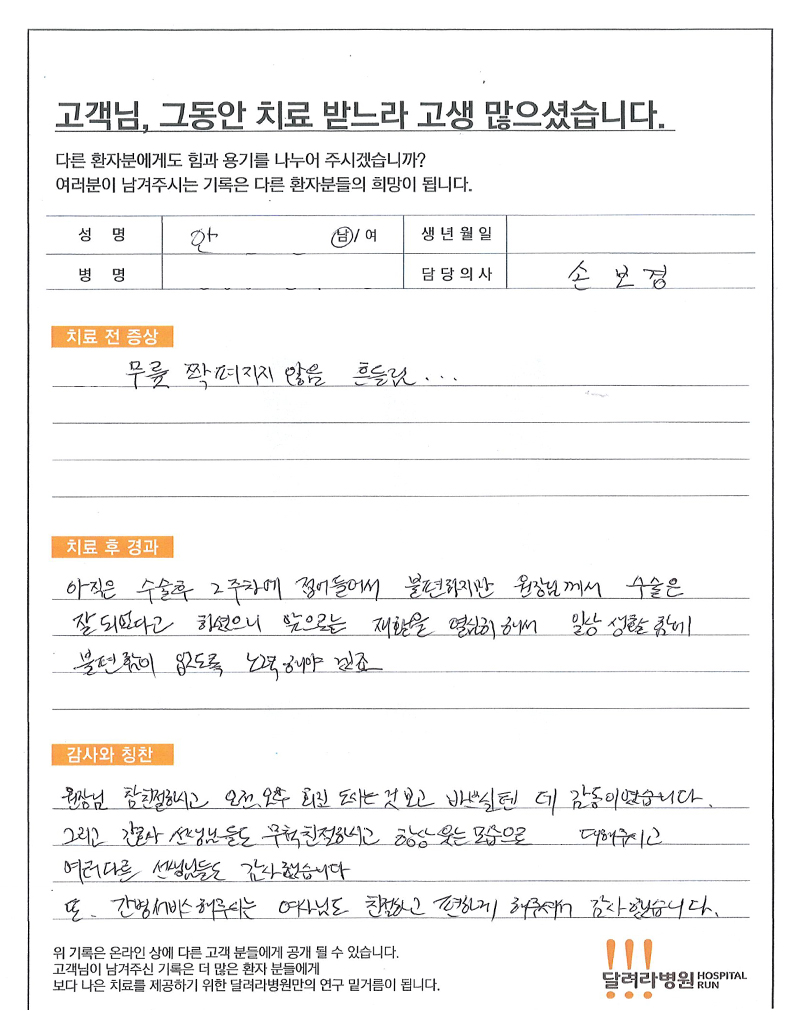 고객님, 그동안 치료 받느라 고생 많으셨습니다.
다른 환자분에게도 힘과 용기를 나누어 주시겠습니까?
여러분이 남겨주시는 기록은 다른 환자분들의 희망이 됩니다.
성 명 안 남/여 생년월일
병 명 담당의사 손보경
치료 전 증상
무릎 짝 펴지지 않음 흔들림...
치료 후 경과
아직은 수술후 2주차에 접어들어서 불편하지만 원장님께서 수술은
잘 되었다고 하셨으니 앞으로는 재활을 열심히 해서 일상 생활 함에
불편함이 없도록 노력해야 겠죠
감사와 칭찬
원장님 참 친절하시고 오전, 오후 회진 도시는 것 보고 바쁘실텐 데 감동이였습니다.
그리고 간호사 선생님들도 무척 친절하시고 항상 웃는 모습으로 대해주시고
여러 다른 선생님들도 감사했습니다
또. 간병서비스 해주시는 여사님도 친절하고 편하게 해주셔서 감사했습니다.
위 기록은 온라인 상에 다른 고객 분들에게 공개 될 수 있습니다.
고객님이 남겨주신 기록은 더 많은 환자 분들에게
보다 나은 치료를 제공하기 위한 달려라병원만의 연구 밑거름이 됩니다.
!!! 달려라병원 HOSPITAL RUN